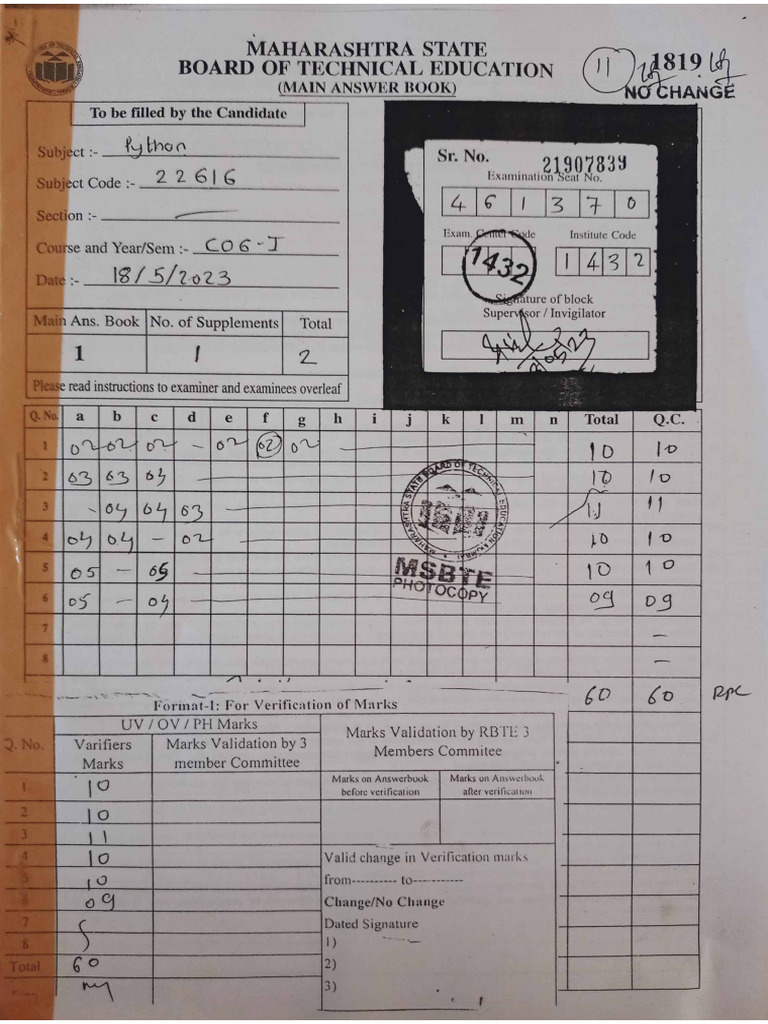 MAHARASHTRA STATE
BOARD OF TECHNICAL EDUCATION
(MAIN ANSWER BOOK)
11 1819
NO CHANGE
To be filled by the Candidate
Subject :- Python
Subject Code :- 22616
Section :-
Course and Year/Sem :- CO6-I
Date :- 18/5/2023
Sr. No. 21907839
Examination Seat No.
4 6 1 3 7 0
Exam. Center Code Institute Code
1432 1 4 3 2
Signature of block
Supervisor / Invigilator
Main Ans. Book No. of Supplements Total
1 1 2
Please read instructions to examiner and examinees overleaf
Q. No. a b c d e f g h i j k l m n Total Q.C.
1 02 02 02 - 02 02 02 10 10
2 03 63 04 10 10
3 - 04 04 63 11 11
4 04 04 - 02 10 10
5 05 - 05 10 10
6 05 - 04 09 09
7 -
8 -
MAHARASHTRA STATE BOARD OF TECHNICAL EDUCATION MUMBAI
MSBTE
PHOTOCOPY
60 60
Format-I: For Verification of Marks
UV / OV / PH Marks
Marks Validation by RBTE 3
Members Commitee
Q. No. Varifiers Marks Marks Validation by 3 member Committee
Marks on Answerbook before verification Marks on Answerbook after verification
1 10
2 10
3 11
4 10
5 10
6 09
7
8
Total 60
Valid change in Verification marks
from---------- to-----------
Change/No Change
Dated Signature
1)
2)
3)